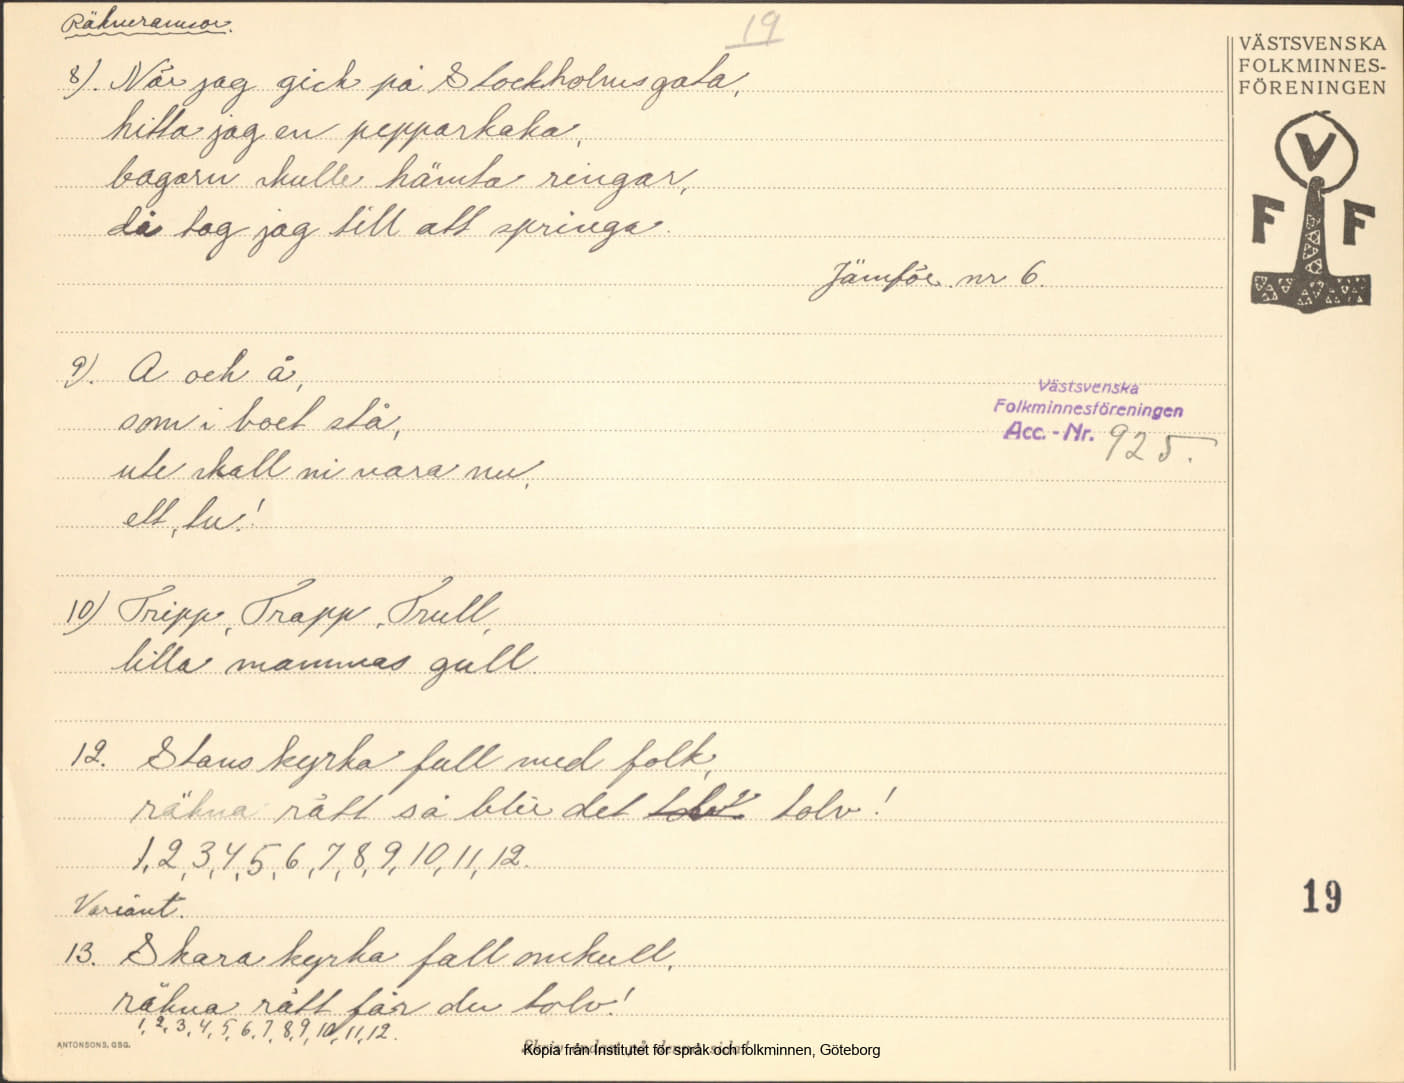 Räkneramsor.
19
8). När jag gick på Stockholmsgata,
hitta jag en pepparkaka,
bagarn skulle hämta ringar,
då tog jag till att springa.
Jämför nr 6.
9). A och å,
som i boet stå,
ute skall ni vara nu,
ett, tu!
10) Tripp, Trapp, Trull,
lilla mammas gull.
12. Stans kyrka full med folk,
räkna rätt så blir det tolv tolv!
1, 2, 3, 4, 5, 6, 7, 8, 9, 10, 11, 12.
Variant.
13. Skara kyrka fall omkull,
räkna rätt får du tolv!
1, 2, 3, 4, 5, 6, 7, 8, 9, 10, 11, 12.
VÄSTSVENSKA
FOLKMINNES-
FÖRENINGEN
V
F F
Västsvenska
Folkminnesföreningen
Acc.-Nr. 925.
19
ANTONSONS, GBG.
Skriv endast på denna sida!
Kopia från Institutet för språk och folkminnen, Göteborg